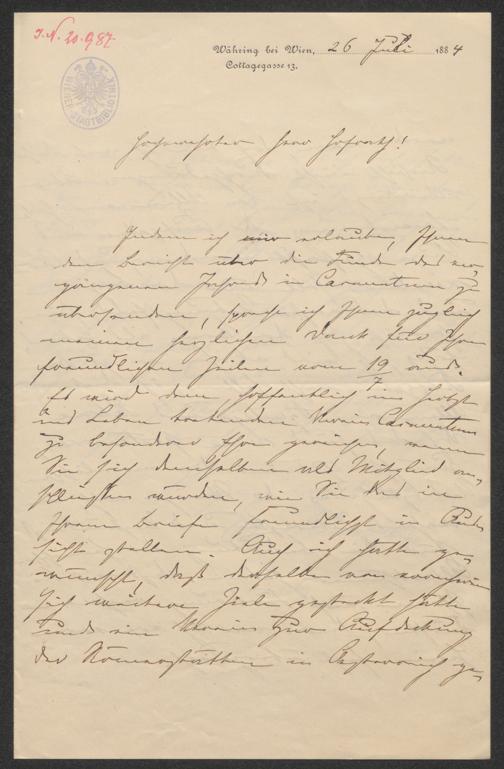 J.N. 20.987
Währing bei Wien, 26 Juli 1884
Cottagegasse 13.
WIENER STADTBIBLIOTHEK
Hochverehrter Herr Hofrath!
Indem ich mir erlaube, Ihnen
den Bericht über die Funde des ver-
gangenen Jahres in Carnuntum zu
übersenden, sage ich Ihnen zugleich
meinen herzlichen Dank für Ihre
freundlichen Zeilen vom 19/7 d.
Es wird dem hoffentlich in
und Leben tretenden Verein Carnuntum
zu besonderer Ehre gereichen, wenn
Sie sich demselben als Mitglied an-
schließen würden, wie Sie das in
Ihrem Briefe freundlichst in Aus-
sicht stellen. Auch ich hätte ge-
wünscht, daß derselbe von vornherein
sich weitere Ziele gesteckt hätte
und ein Verein zur Aufdeckung
der Römerstätten in Oesterreich ge-